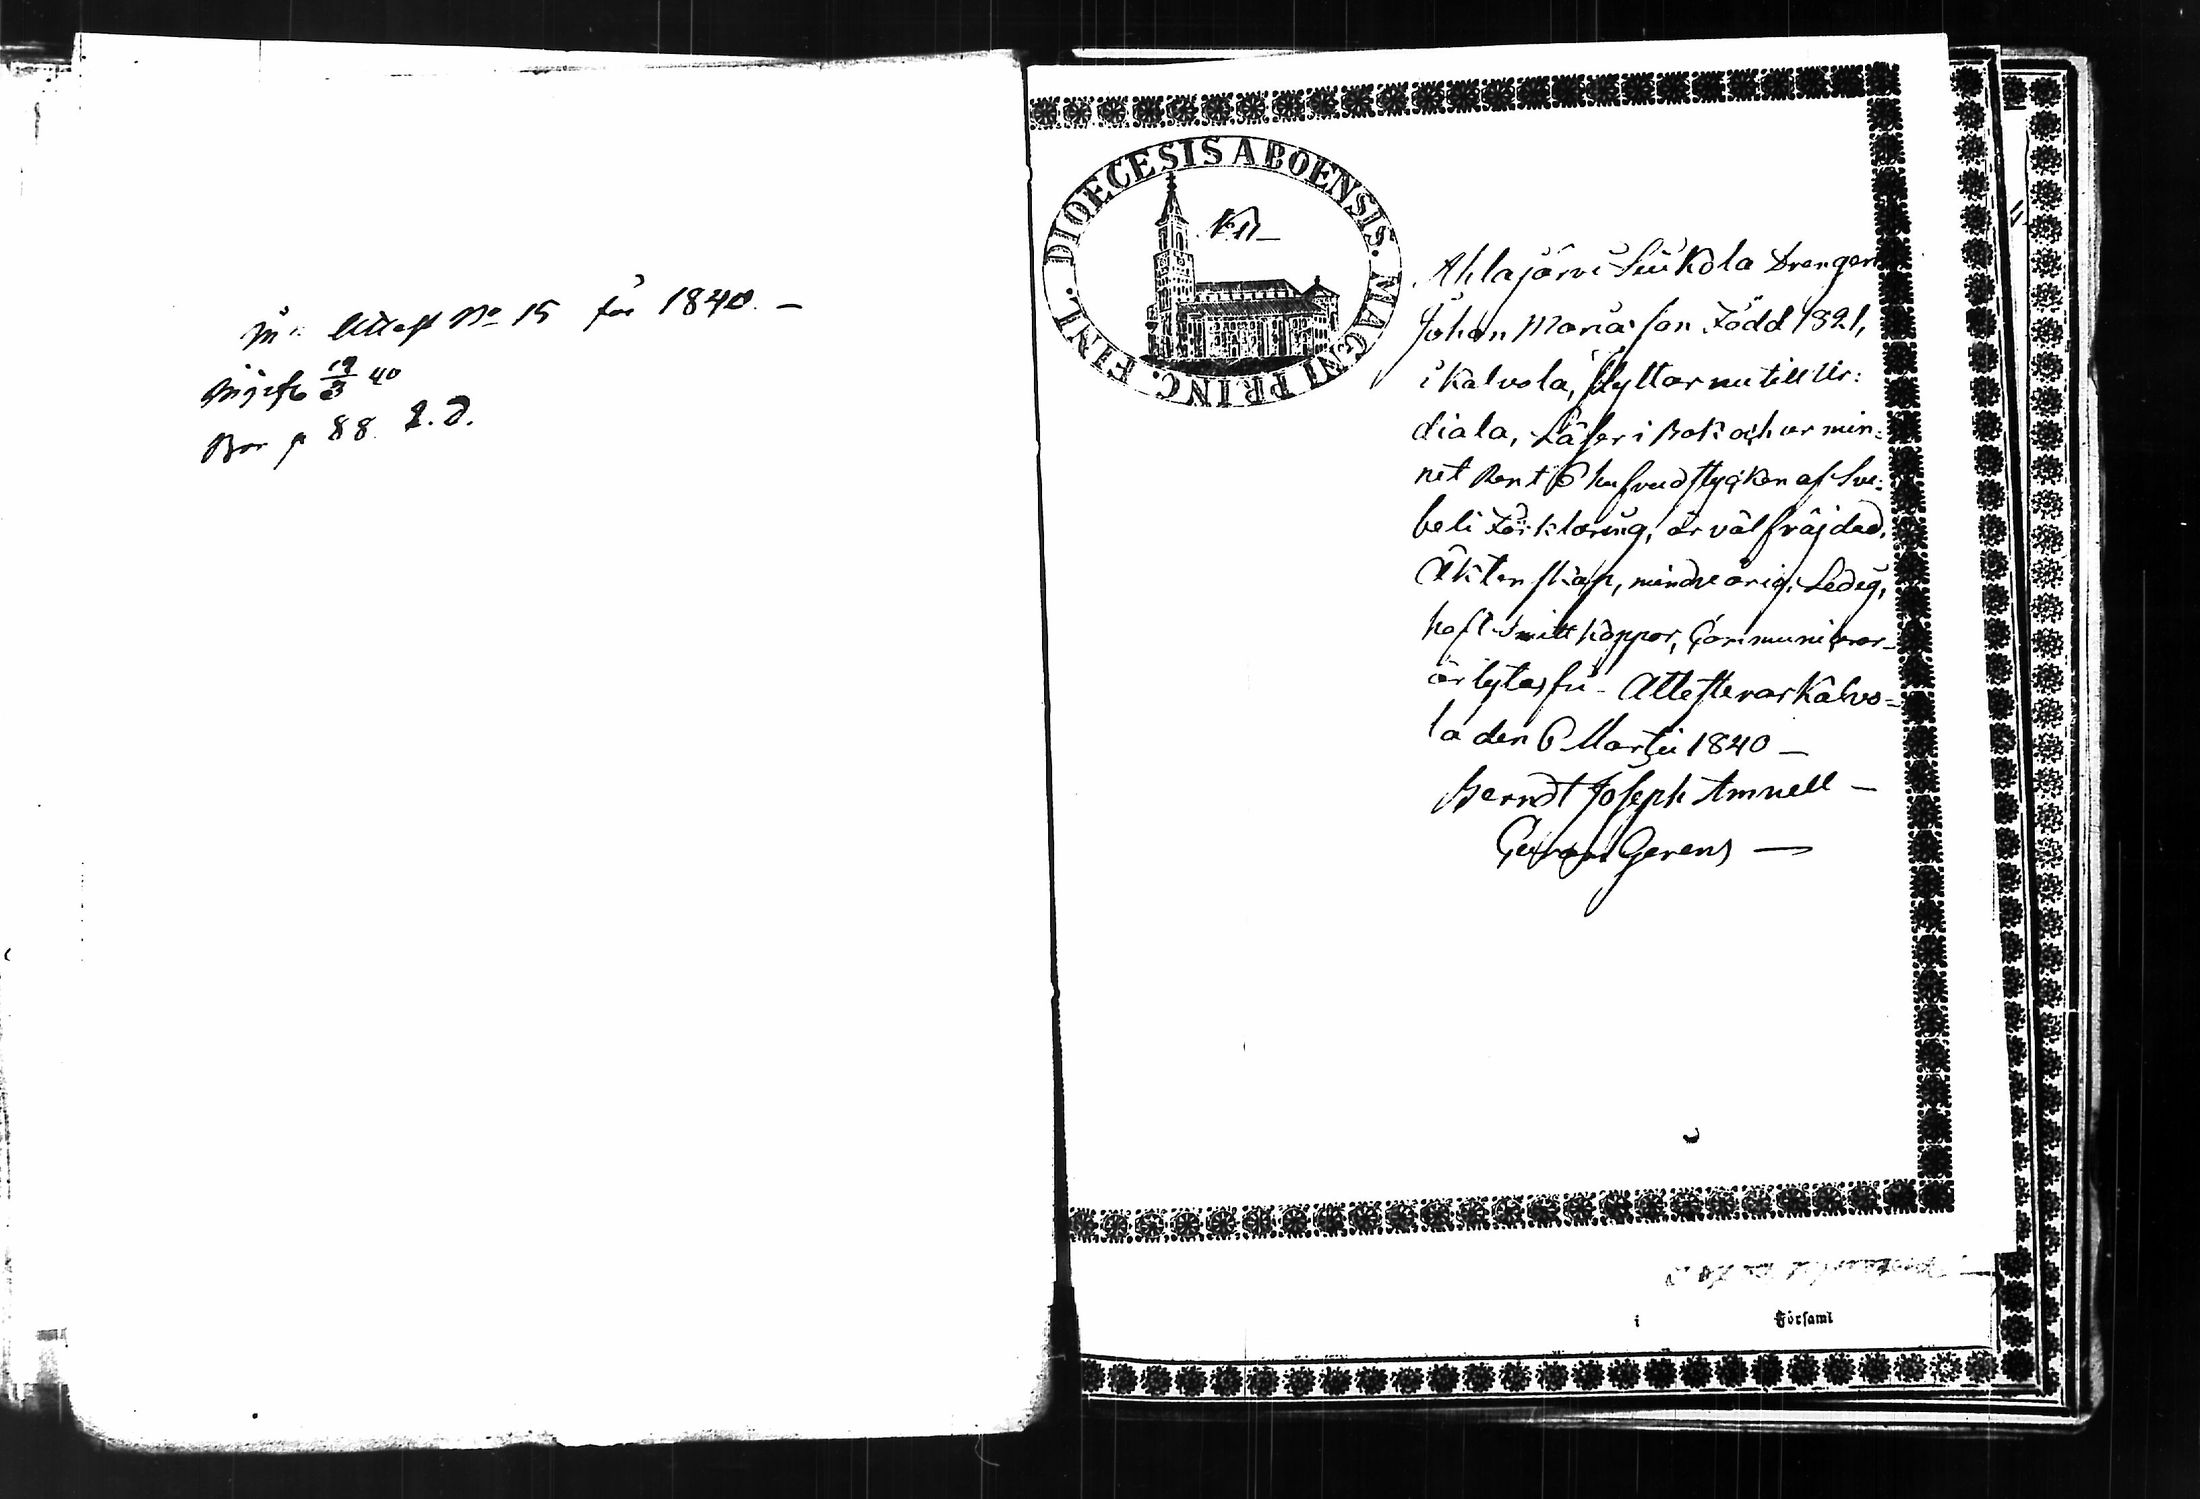 Attest No 15 för 1840. –
19/3 40
Bor p 88. L. D.
DIOECESIS ABOENSIS. MAGNI PRINC. FINL.
Ahlajärvi Seukola Drengen
Johan Mariasson Född 1821,
i Kalvola, flyttar nu till Ur:
diala, Läser i Bok och ur min:
net Rent 6 hufvudstycken af Sve:
beli Förklaring, är väl fräjdad,
Äktenskap, mindreårig, Ledig,
haft Smittkoppor, Communicerar
är lytesfri – Attesterar Kalvo=
la den 6 Martii 1840 –
Berndt Joseph Amnell –
Gerens –
i Församl